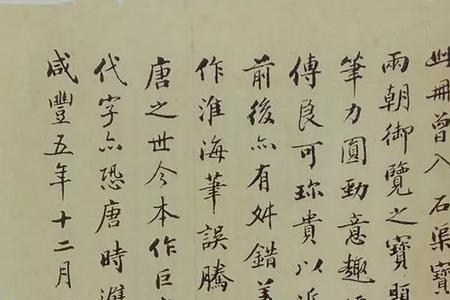 此冊曾入石渠寶
兩朝御覽之寶題
筆力圓勁意趣
傳良可珎貴以近
前後亦有舛錯
作淮海筆誤騰
唐之世今本作巨
代字亦恐唐時淮
咸豐五年十二月